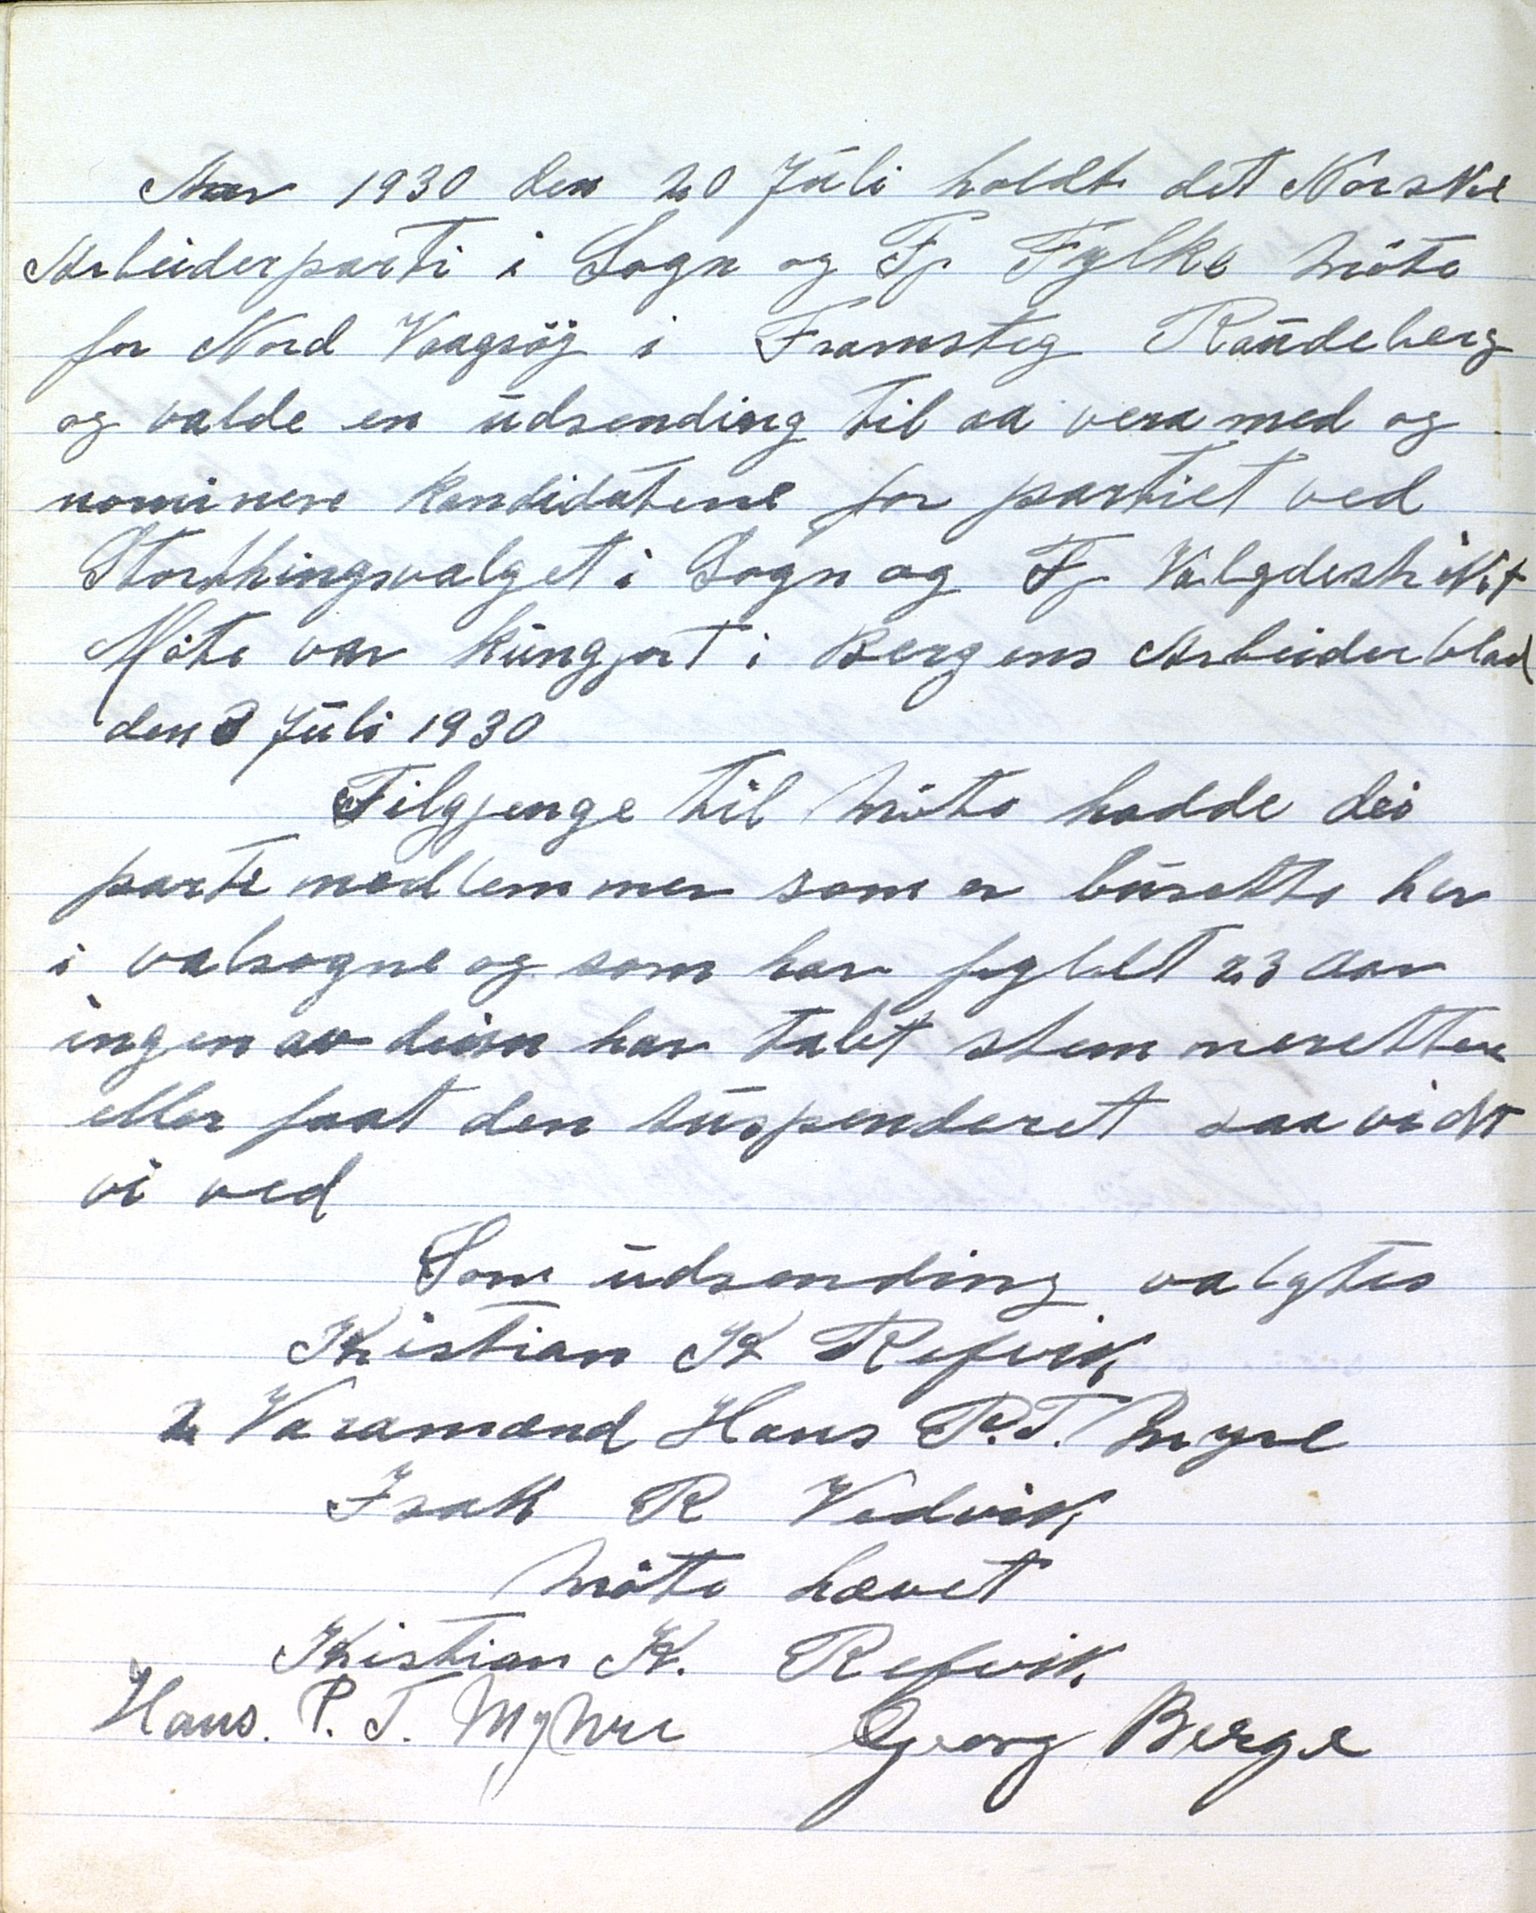 Aar 1930 den 20 Júli holdt det Norske
Arbeiderparti i Sogn og Fj Fylke möte
for Nord Vaagsöy i Framsteg Raúdeberg
og valde en údsending til aa vera med og
nominere kandidatene for partiet ved
Storthingsvalget i Sogn og Fj Valgdestrikt
Möte var kúngjort i Bergens Arbeiderblad
den 3 Júli 1930
Tilgjenge til möte hadde dei
parti medlemmer som er búsette her
i valsogne og som har fyldt 23 aar
ingen av deim har tabt stemmeretten
eller faat den súspenderet saavidt
vi ved
Som údsending valgtes
Kristian K Refvik
2 Varamænd Hans P. T. Myre
Isak R Vedvik
Möte hævet
Kristian K. Refvik
Hans. P. T. Myhre Georg Berge